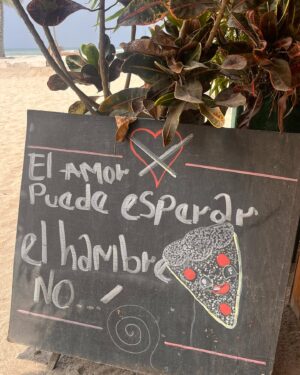 El AMOR
Puede esperar
el hambre
NO...